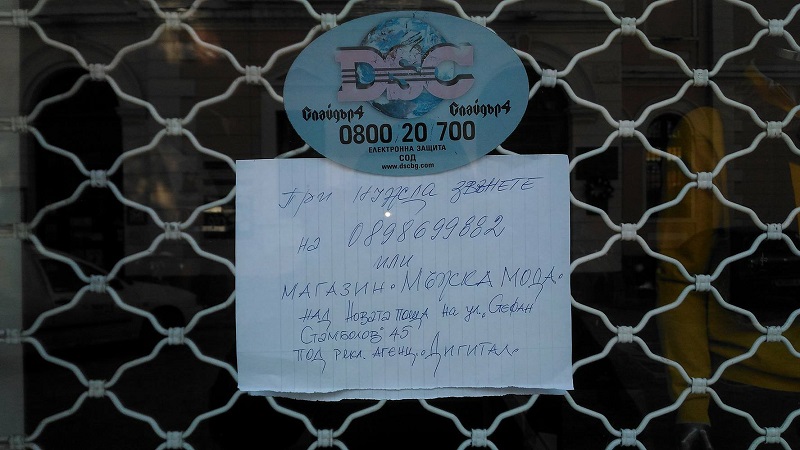 DSC
Спайдър4 Спайдър4
0800 20 700
ЕЛЕКТРОННА ЗАЩИТА
СОД
www.dscbg.com
ПРИ НУЖДА ЗВЪНЕТЕ
на 0898699882
или
МАГАЗИН "МЪЖКА МОДА"
НАД Новата поща на ул. "Стефан
Стамболов" 45
ПОД рекл. агенц. "ДИГИТАЛ"